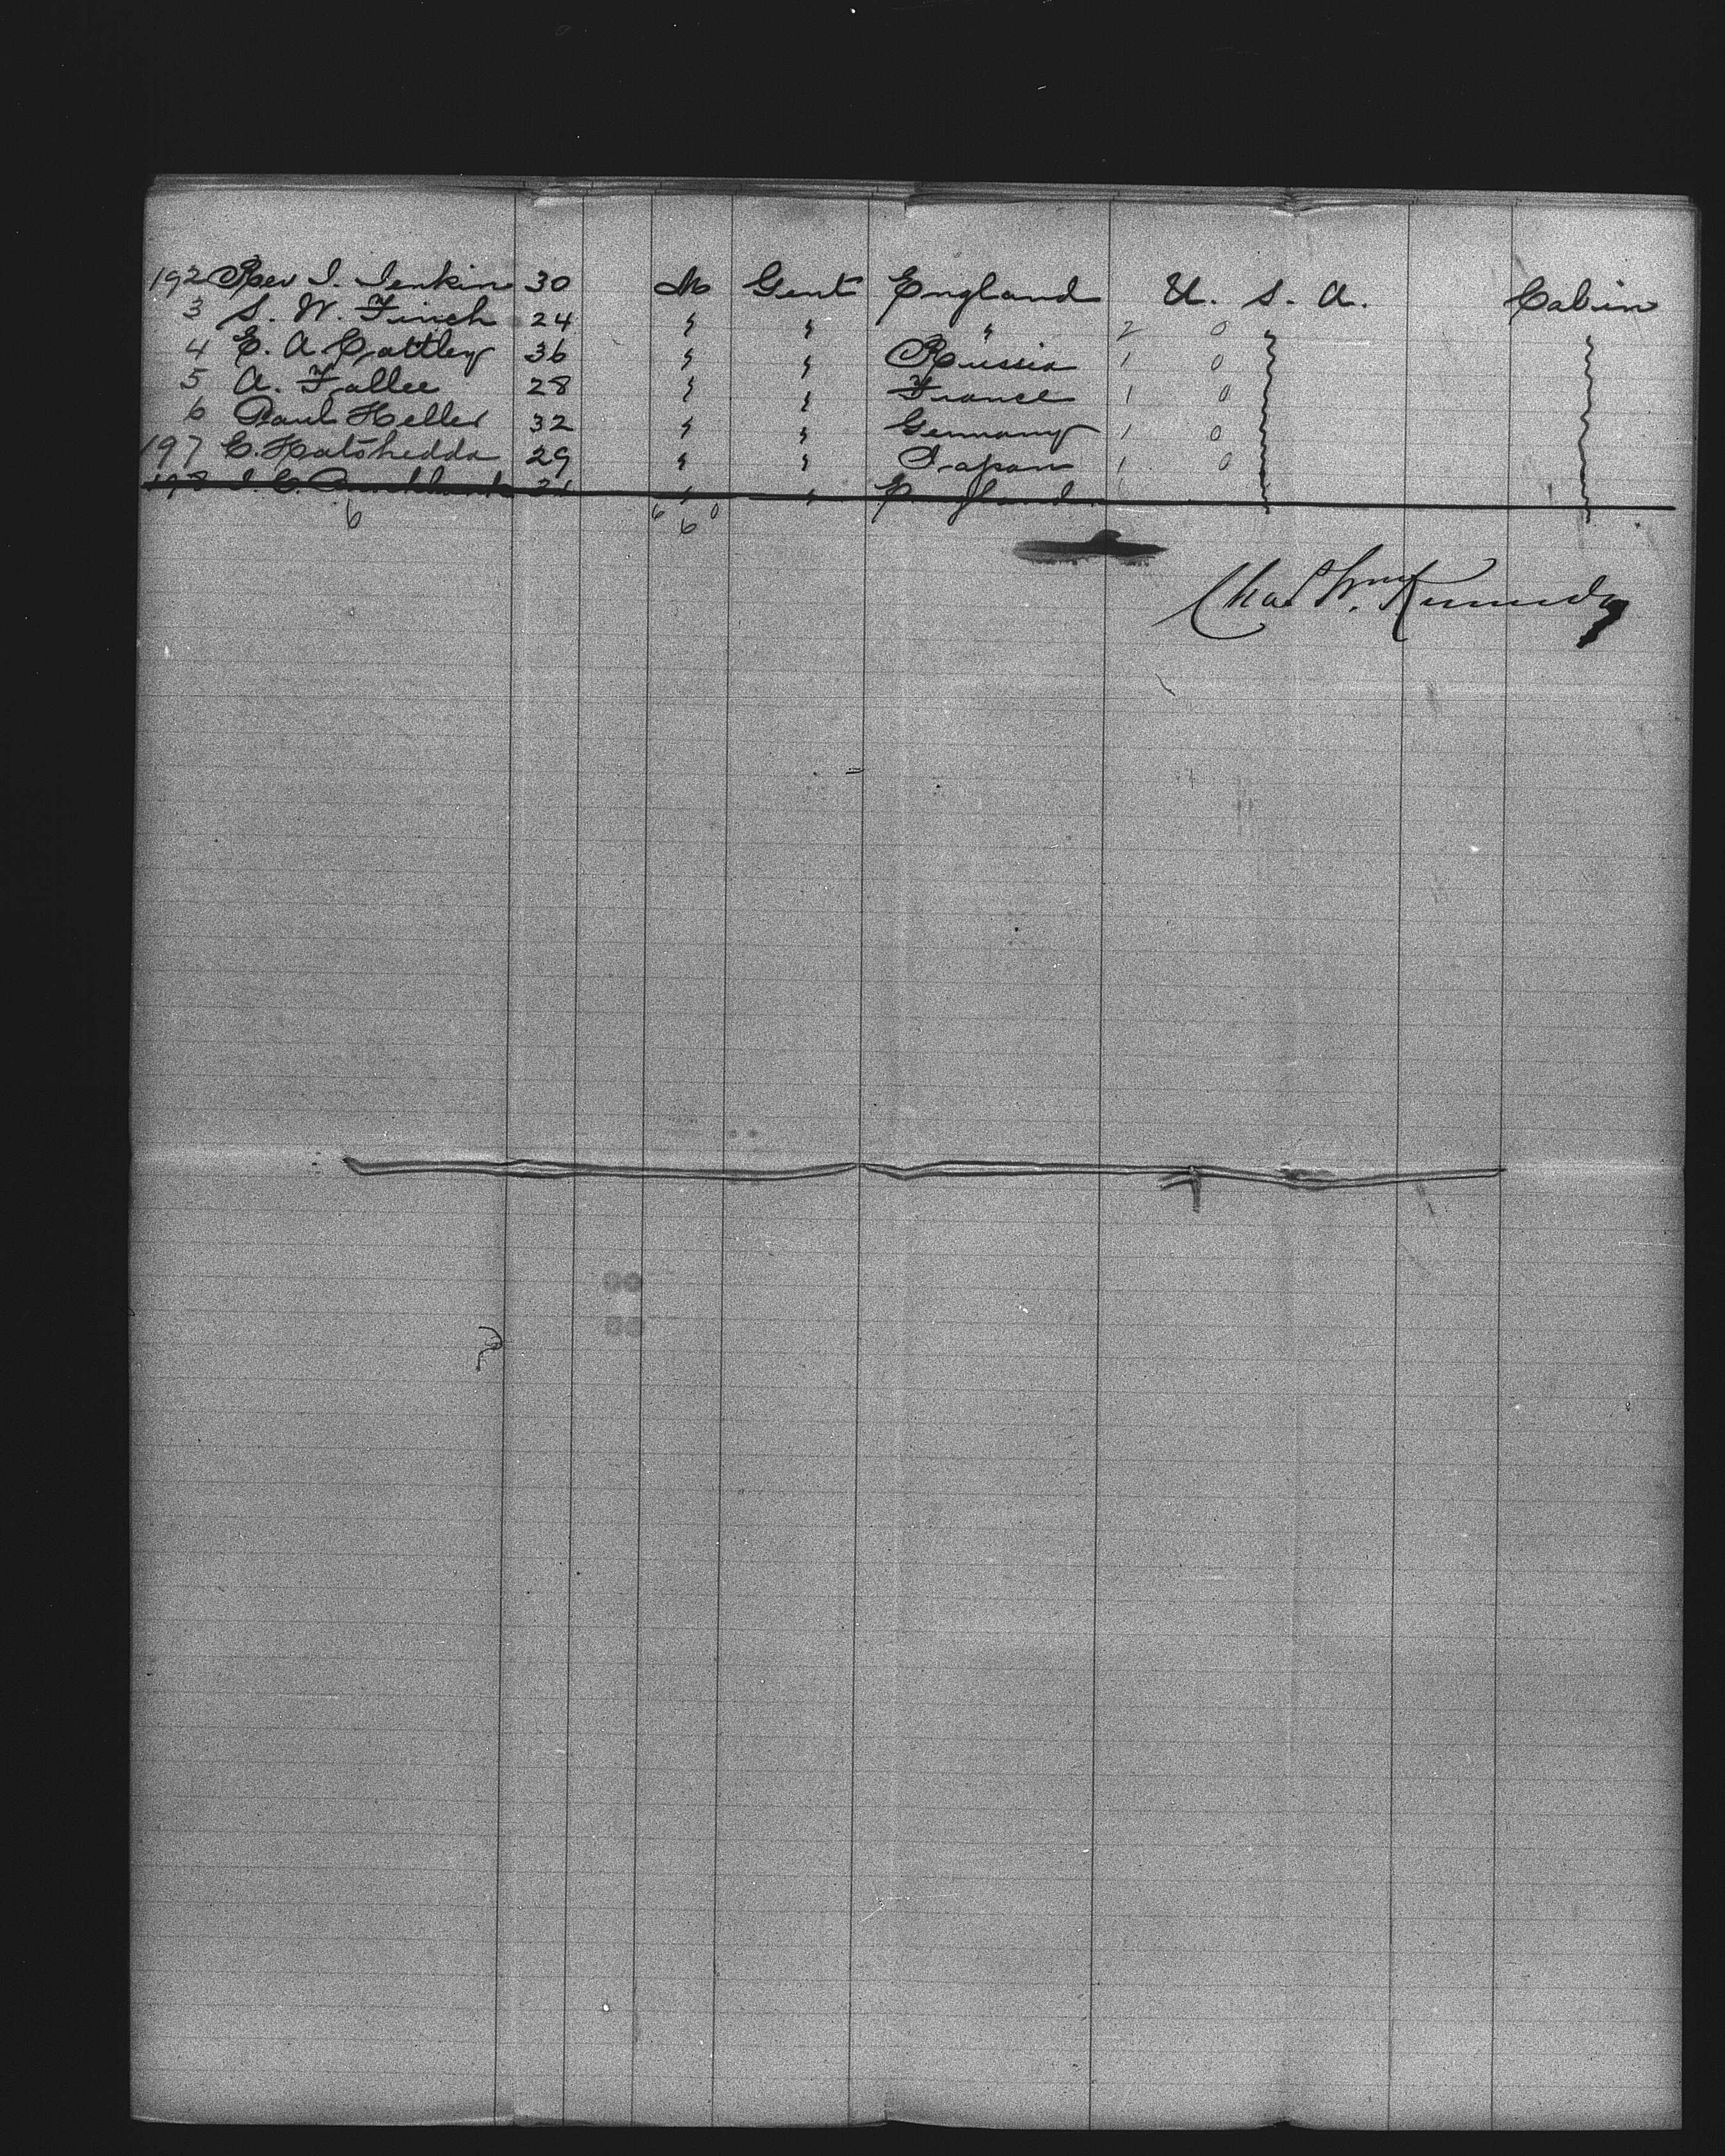 192 Rev I. Jenkins 30 M Gent England U. S. A. Cabin
3 S. W. Finch 24 " " " 2 0
4 E. A. Cattley 36 " " Russia 1 0
5 A. Fallee 28 " " France 1 0
6 Paul Heller 32 " " Germany 1 0
197 C. Hatshedda 29 " " Japan 1 0
198 J. C. " " England
6 6 6 0
Chas Wm Kennedy